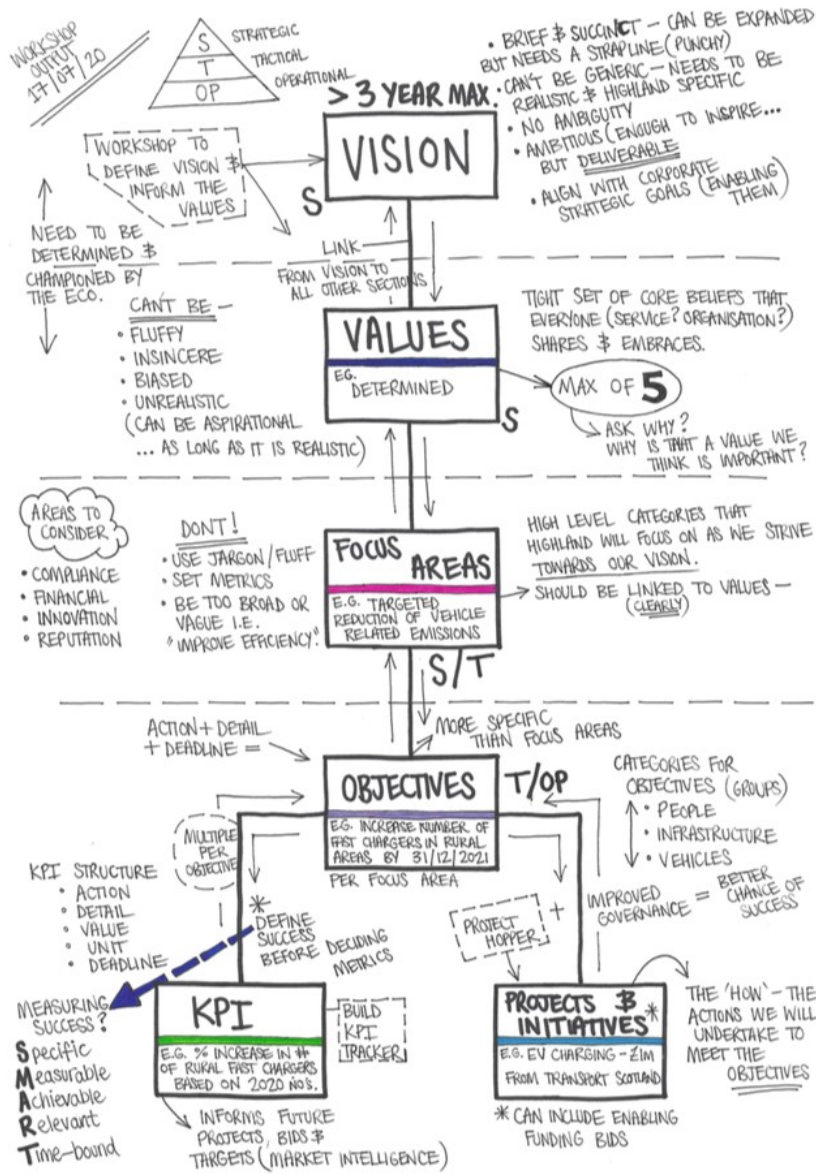 WORKSHOP
OUTPUT
17/07/20
S
T
OP
STRATEGIC
TACTICAL
OPERATIONAL
> 3 YEAR MAX.
VISION
S
• BRIEF & SUCCINCT – CAN BE EXPANDED
BUT NEEDS A STRAPLINE (PUNCHY)
• CAN'T BE GENERIC – NEEDS TO BE
REALISTIC & HIGHLAND SPECIFIC
• NO AMBIGUITY
• AMBITIOUS (ENOUGH TO INSPIRE...
BUT DELIVERABLE
• ALIGN WITH CORPORATE
STRATEGIC GOALS (ENABLING
THEM)
WORKSHOP TO
DEFINE VISION &
INFORM THE
VALUES
NEED TO BE
DETERMINED &
CHAMPIONED BY
THE ECO.
LINK
FROM VISION TO
ALL OTHER SECTIONS
CAN'T BE –
• FLUFFY
• INSINCERE
• BIASED
• UNREALISTIC
(CAN BE ASPIRATIONAL
... AS LONG AS IT IS REALISTIC)
VALUES
EG.
DETERMINED
S
TIGHT SET OF CORE BELIEFS THAT
EVERYONE (SERVICE? ORGANISATION?)
SHARES & EMBRACES.
MAX OF 5
ASK WHY?
WHY IS THAT A VALUE WE
THINK IS IMPORTANT?
AREAS TO
CONSIDER
• COMPLIANCE
• FINANCIAL
• INNOVATION
• REPUTATION
DONT!
• USE JARGON/FLUFF
• SET METRICS
• BE TOO BROAD OR
VAGUE I.E.
"IMPROVE EFFICIENCY"
FOCUS
AREAS
E.G. TARGETED
REDUCTION OF VEHICLE
RELATED EMISSIONS
S/T
HIGH LEVEL CATEGORIES THAT
HIGHLAND WILL FOCUS ON AS WE STRIVE
TOWARDS OUR VISION.
SHOULD BE LINKED TO VALUES –
(CLEARLY)
ACTION + DETAIL
+ DEADLINE =
MORE SPECIFIC
THAN FOCUS AREAS
OBJECTIVES
T/OP
E.G. INCREASE NUMBER OF
FAST CHARGERS IN RURAL
AREAS BY 31/12/2021
PER FOCUS AREA
CATEGORIES FOR
OBJECTIVES (GROUPS)
• PEOPLE
• INFRASTRUCTURE
• VEHICLES
MULTIPLE
PER
OBJECTIVE
KPI STRUCTURE
• ACTION
• DETAIL
• VALUE
• UNIT
• DEADLINE
*
DEFINE
SUCCESS
BEFORE DECIDING
METRICS
PROJECT
HOPPER
+
IMPROVED
GOVERNANCE = BETTER
CHANCE OF
SUCCESS
MEASURING
SUCCESS?
Specific
Measurable
Achievable
Relevant
Time-bound
KPI
E.G. % INCREASE IN #
OF RURAL FAST CHARGERS
BASED ON 2020 NO'S.
BUILD
KPI
TRACKER
INFORMS FUTURE
PROJECTS, BIDS &
TARGETS (MARKET INTELLIGENCE)
PROJECTS &
INITIATIVES*
E.G. EV CHARGING – £1M
FROM TRANSPORT SCOTLAND
* CAN INCLUDE ENABLING
FUNDING BIDS
THE 'HOW' – THE
ACTIONS WE WILL
UNDERTAKE TO
MEET THE
OBJECTIVES